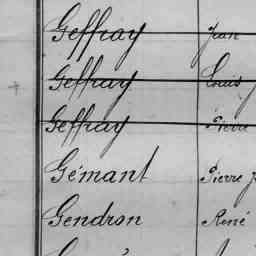 Geffray Jean
Geffray Louis
Geffray Pierre
Gémant Pierre
Gendron René